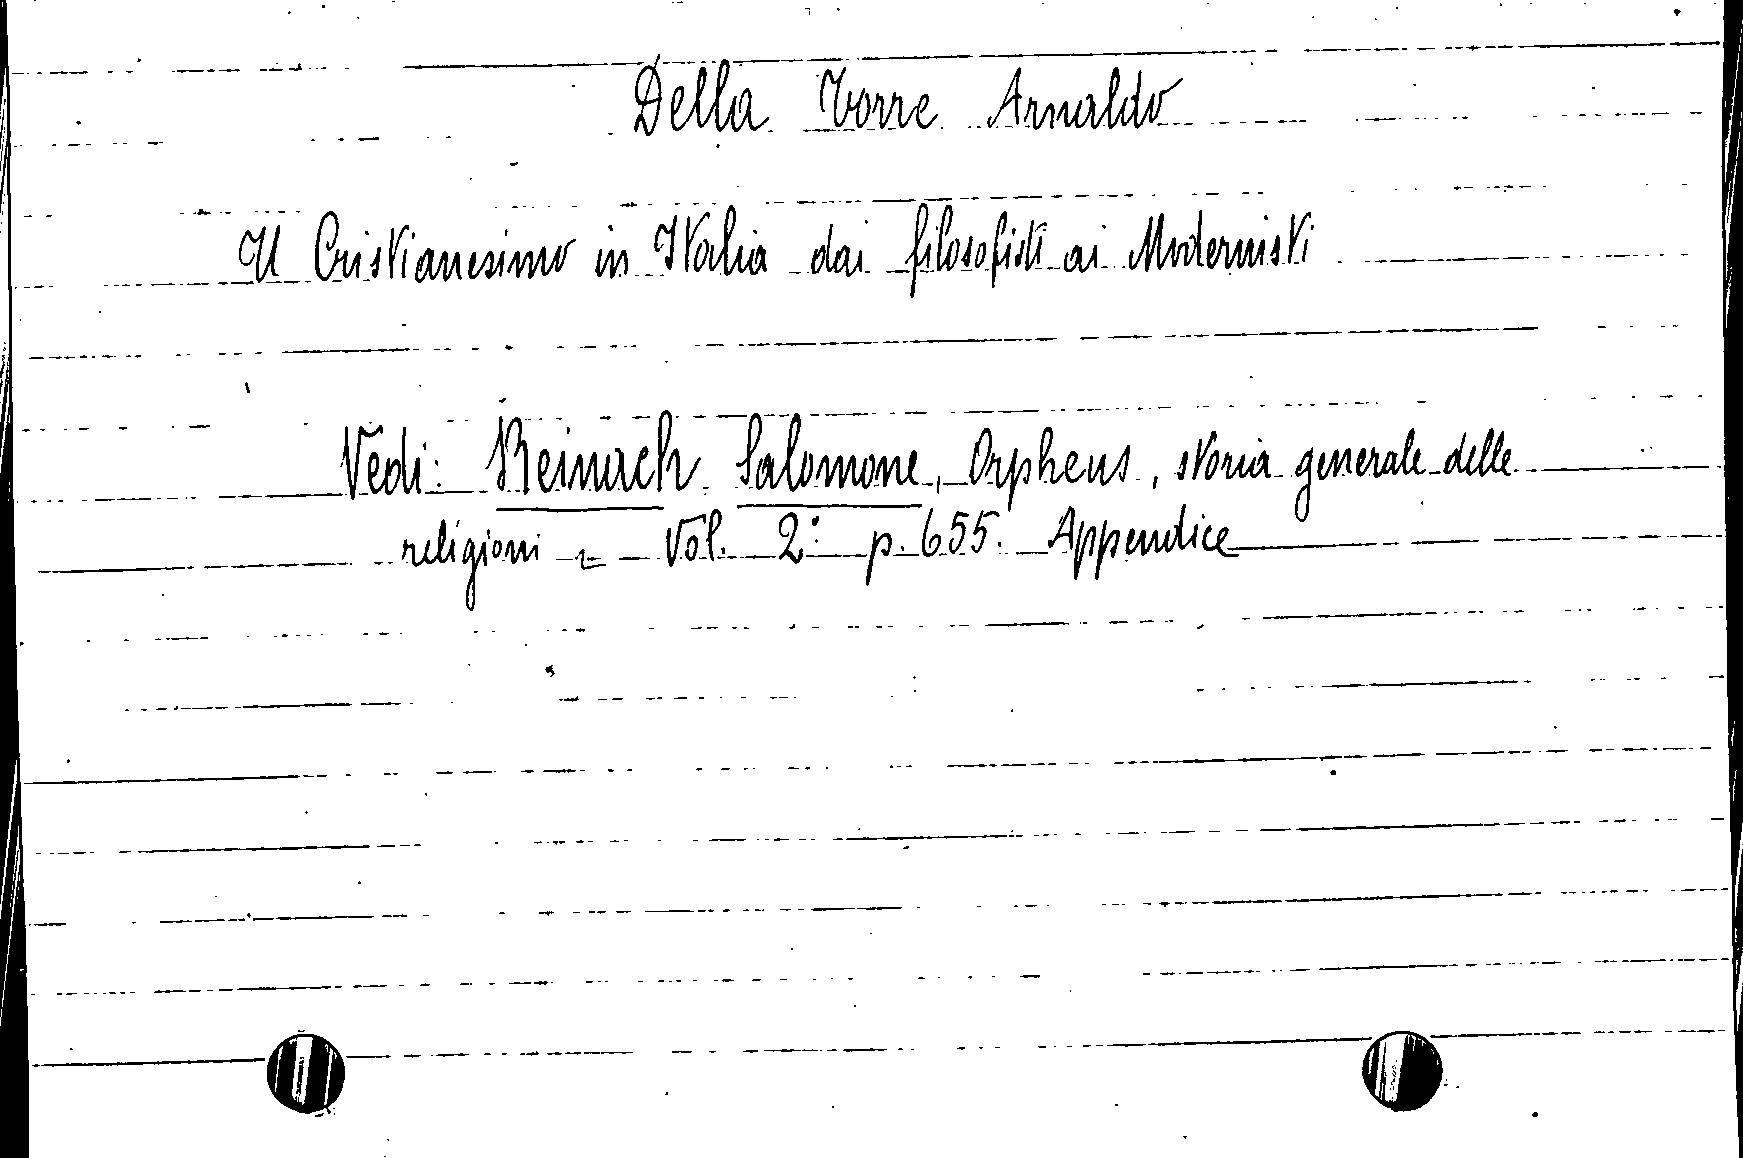 Della Torre Arnaldo
Il Cristianesimo in Italia dai filosofisti ai Modernisti
Vedi: Reinach Salomone, Orpheus, storia generale delle
religioni = Vol. 2: p. 655. Appendice